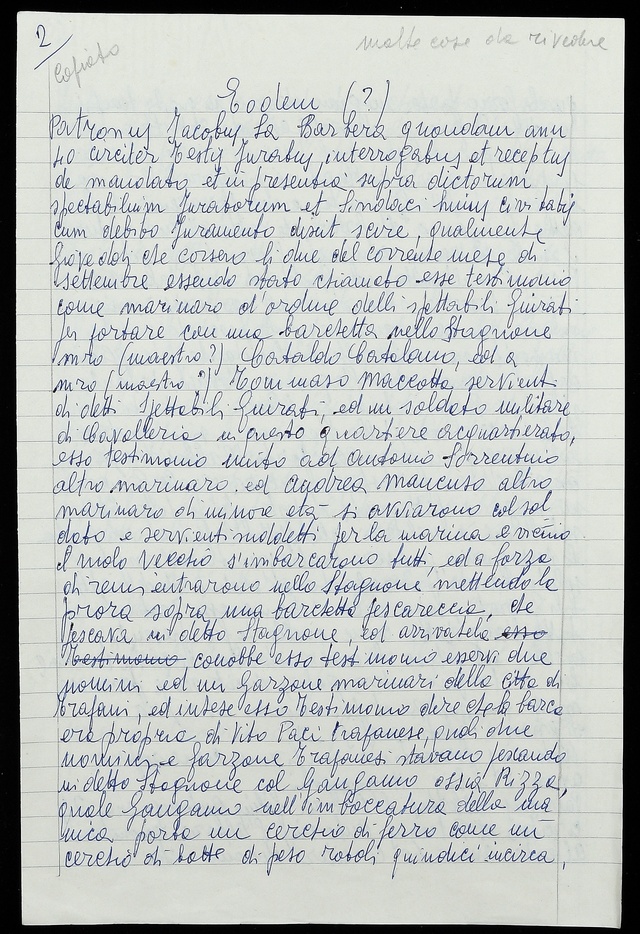 2
molte cose da rivedere
Copiato
Eodem (?)
Patronus Jacobus La Barbera quondam ann
40 circiter Testis Juratus, interrogatus et receptus
de mandato et in presentia supra dictorum
spectabilium Juratorum et Sindaci huius civitatis
cum debito Juramento dixit scire, qualmente
Gioveddì che corsero li due del corrente mese di
settembre essendo stato chiamato esse testimonio
come marinaro d'ordine delli spettabili Giurati
per portare con una barchetta nello Stagnone
mro (maestro?) Cataldo Catalano, ed a
mro (maestro?) Tommaso Maccotta servienti
di detti Spettabili Giurati, ed un soldato militare
di Cavalleria in questo quartiere acquartierato,
esso testimonio unito ad Antonio Sorrentino
altro marinaro, ed Andrea Mancuso altro
marinaro di minore età si avviarono col sol
dato e servienti suddetti per la marina e vicino
il molo vecchio s'imbarcarono tutti, ed a forza
di remi entrarono nello Stagnone mettendo la
prora sopra una barchetta pescareccia, che
pescava in detto Stagnone, ed arrivatela esso
Testimonio conobbe esso testimonio esservi due
uomini ed un Garzone marinari della città di
Trapani, ed intese esso Testimonio dire che la barca
era propria di Vito Paci trapanese, quali due
uomini e Garzone Trapanesi stavano pescando
in detto Stagnone col Gangamo ossia Rizza,
quale Gangamo nell'imboccatura della ma
nica porta un cerchio di ferro come un
cerchio di botte di peso rotoli quindici incirca,